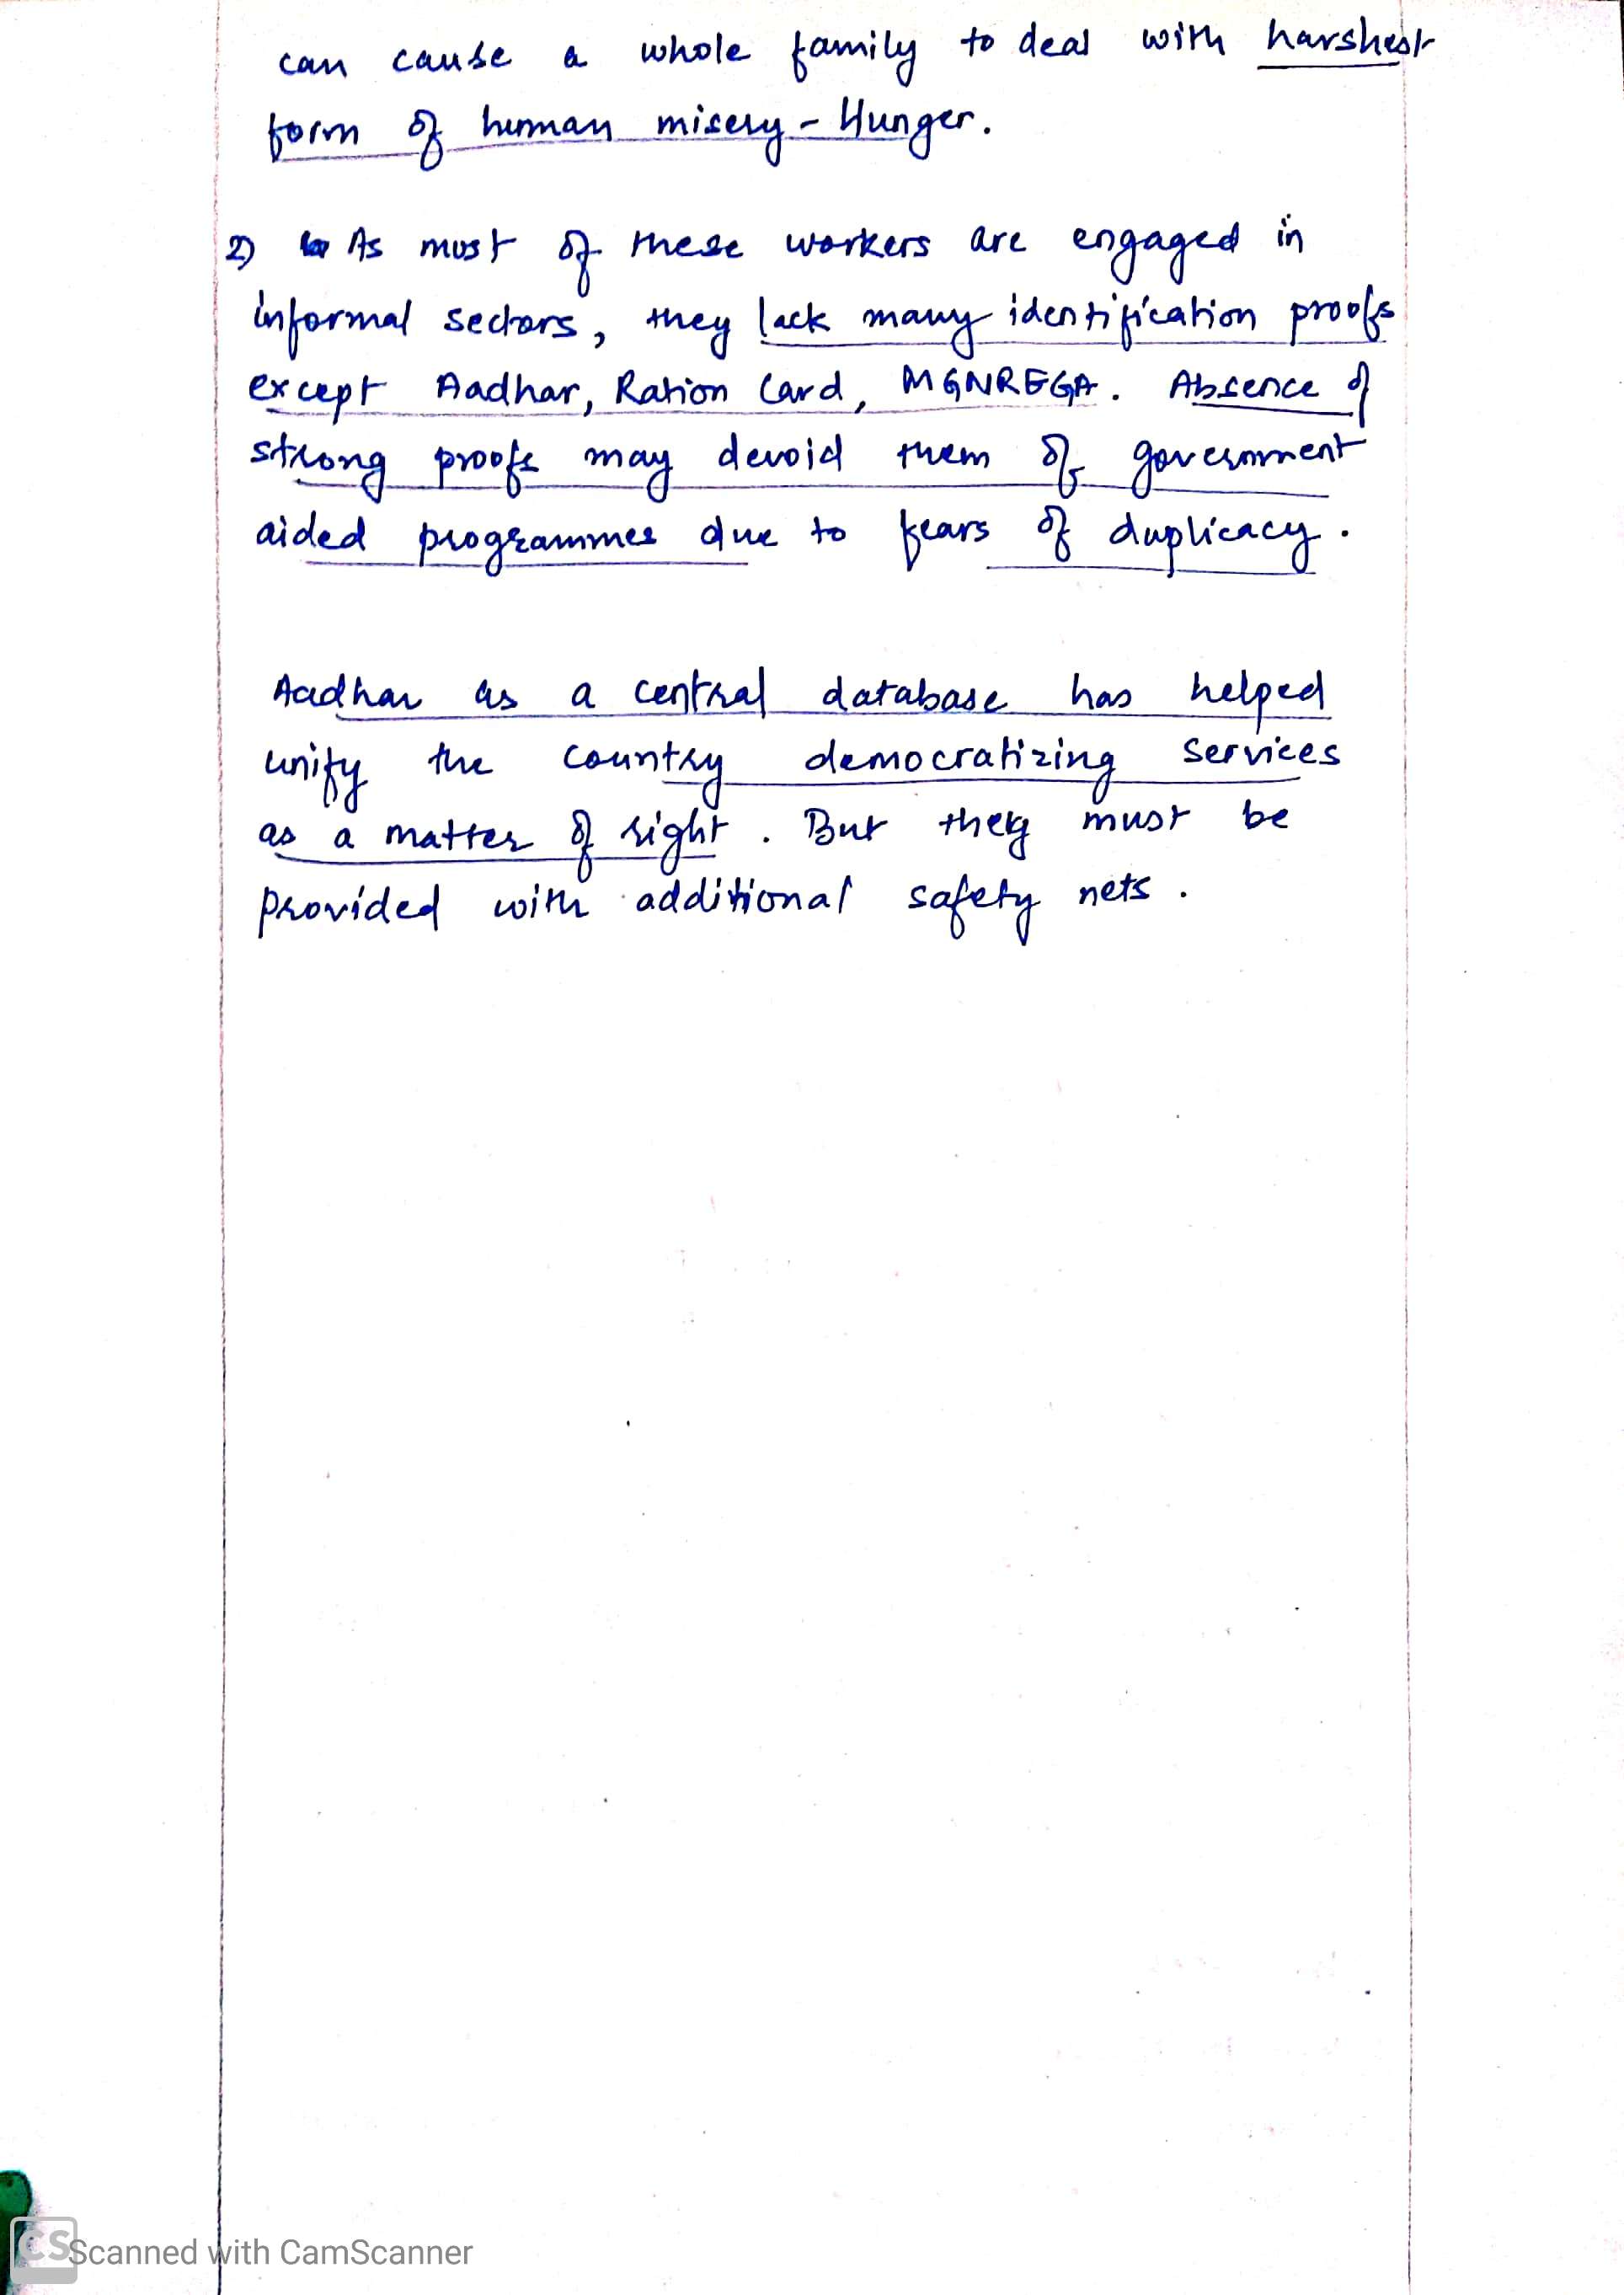 can cause a whole family to deal with harshest
form of human misery - Hunger.
2) As most of these workers are engaged in
informal sectors, they lack many identification proofs
except Aadhar, Ration Card, MGNREGA. Absence of
strong proofs may devoid them of government
aided programmes due to fears of duplicacy.
Aadhar as a central database has helped
unify the country democratizing services
as a matter of right. But they must be
provided with additional safety nets.
CS Scanned with CamScanner